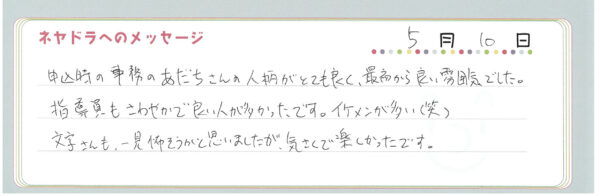 ネヤドラへのメッセージ
5月10日
申込時の事務のあだちさんの人柄がとても良く、最高から良い雰囲気でした。
指導員もさわやかで良い人が多かったです。イケメンが多い(笑)
文字さんも、一見怖そうがと思いましたが、気さくで楽しかったです。